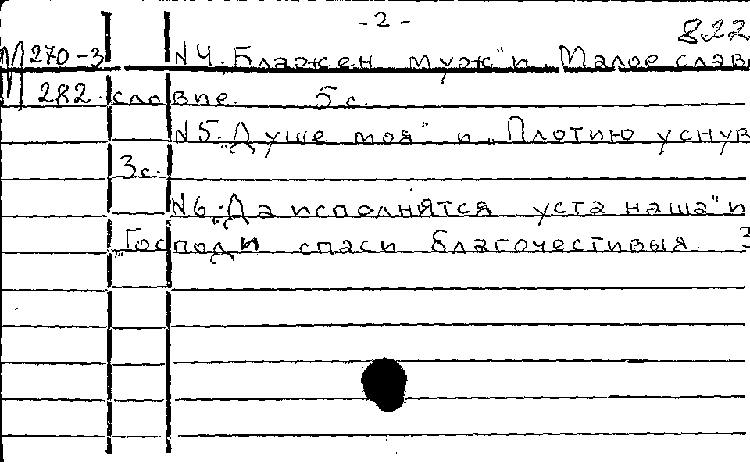 -2-
822
М 270-3 N4. „Блажен муж" и „Малое слав
282 словие. 5с.
N5. „Душе моя" и „Плотию уснув
3с.
N6. „Да исполнятся уста наша" и
„Господи спаси благочестивыя 3